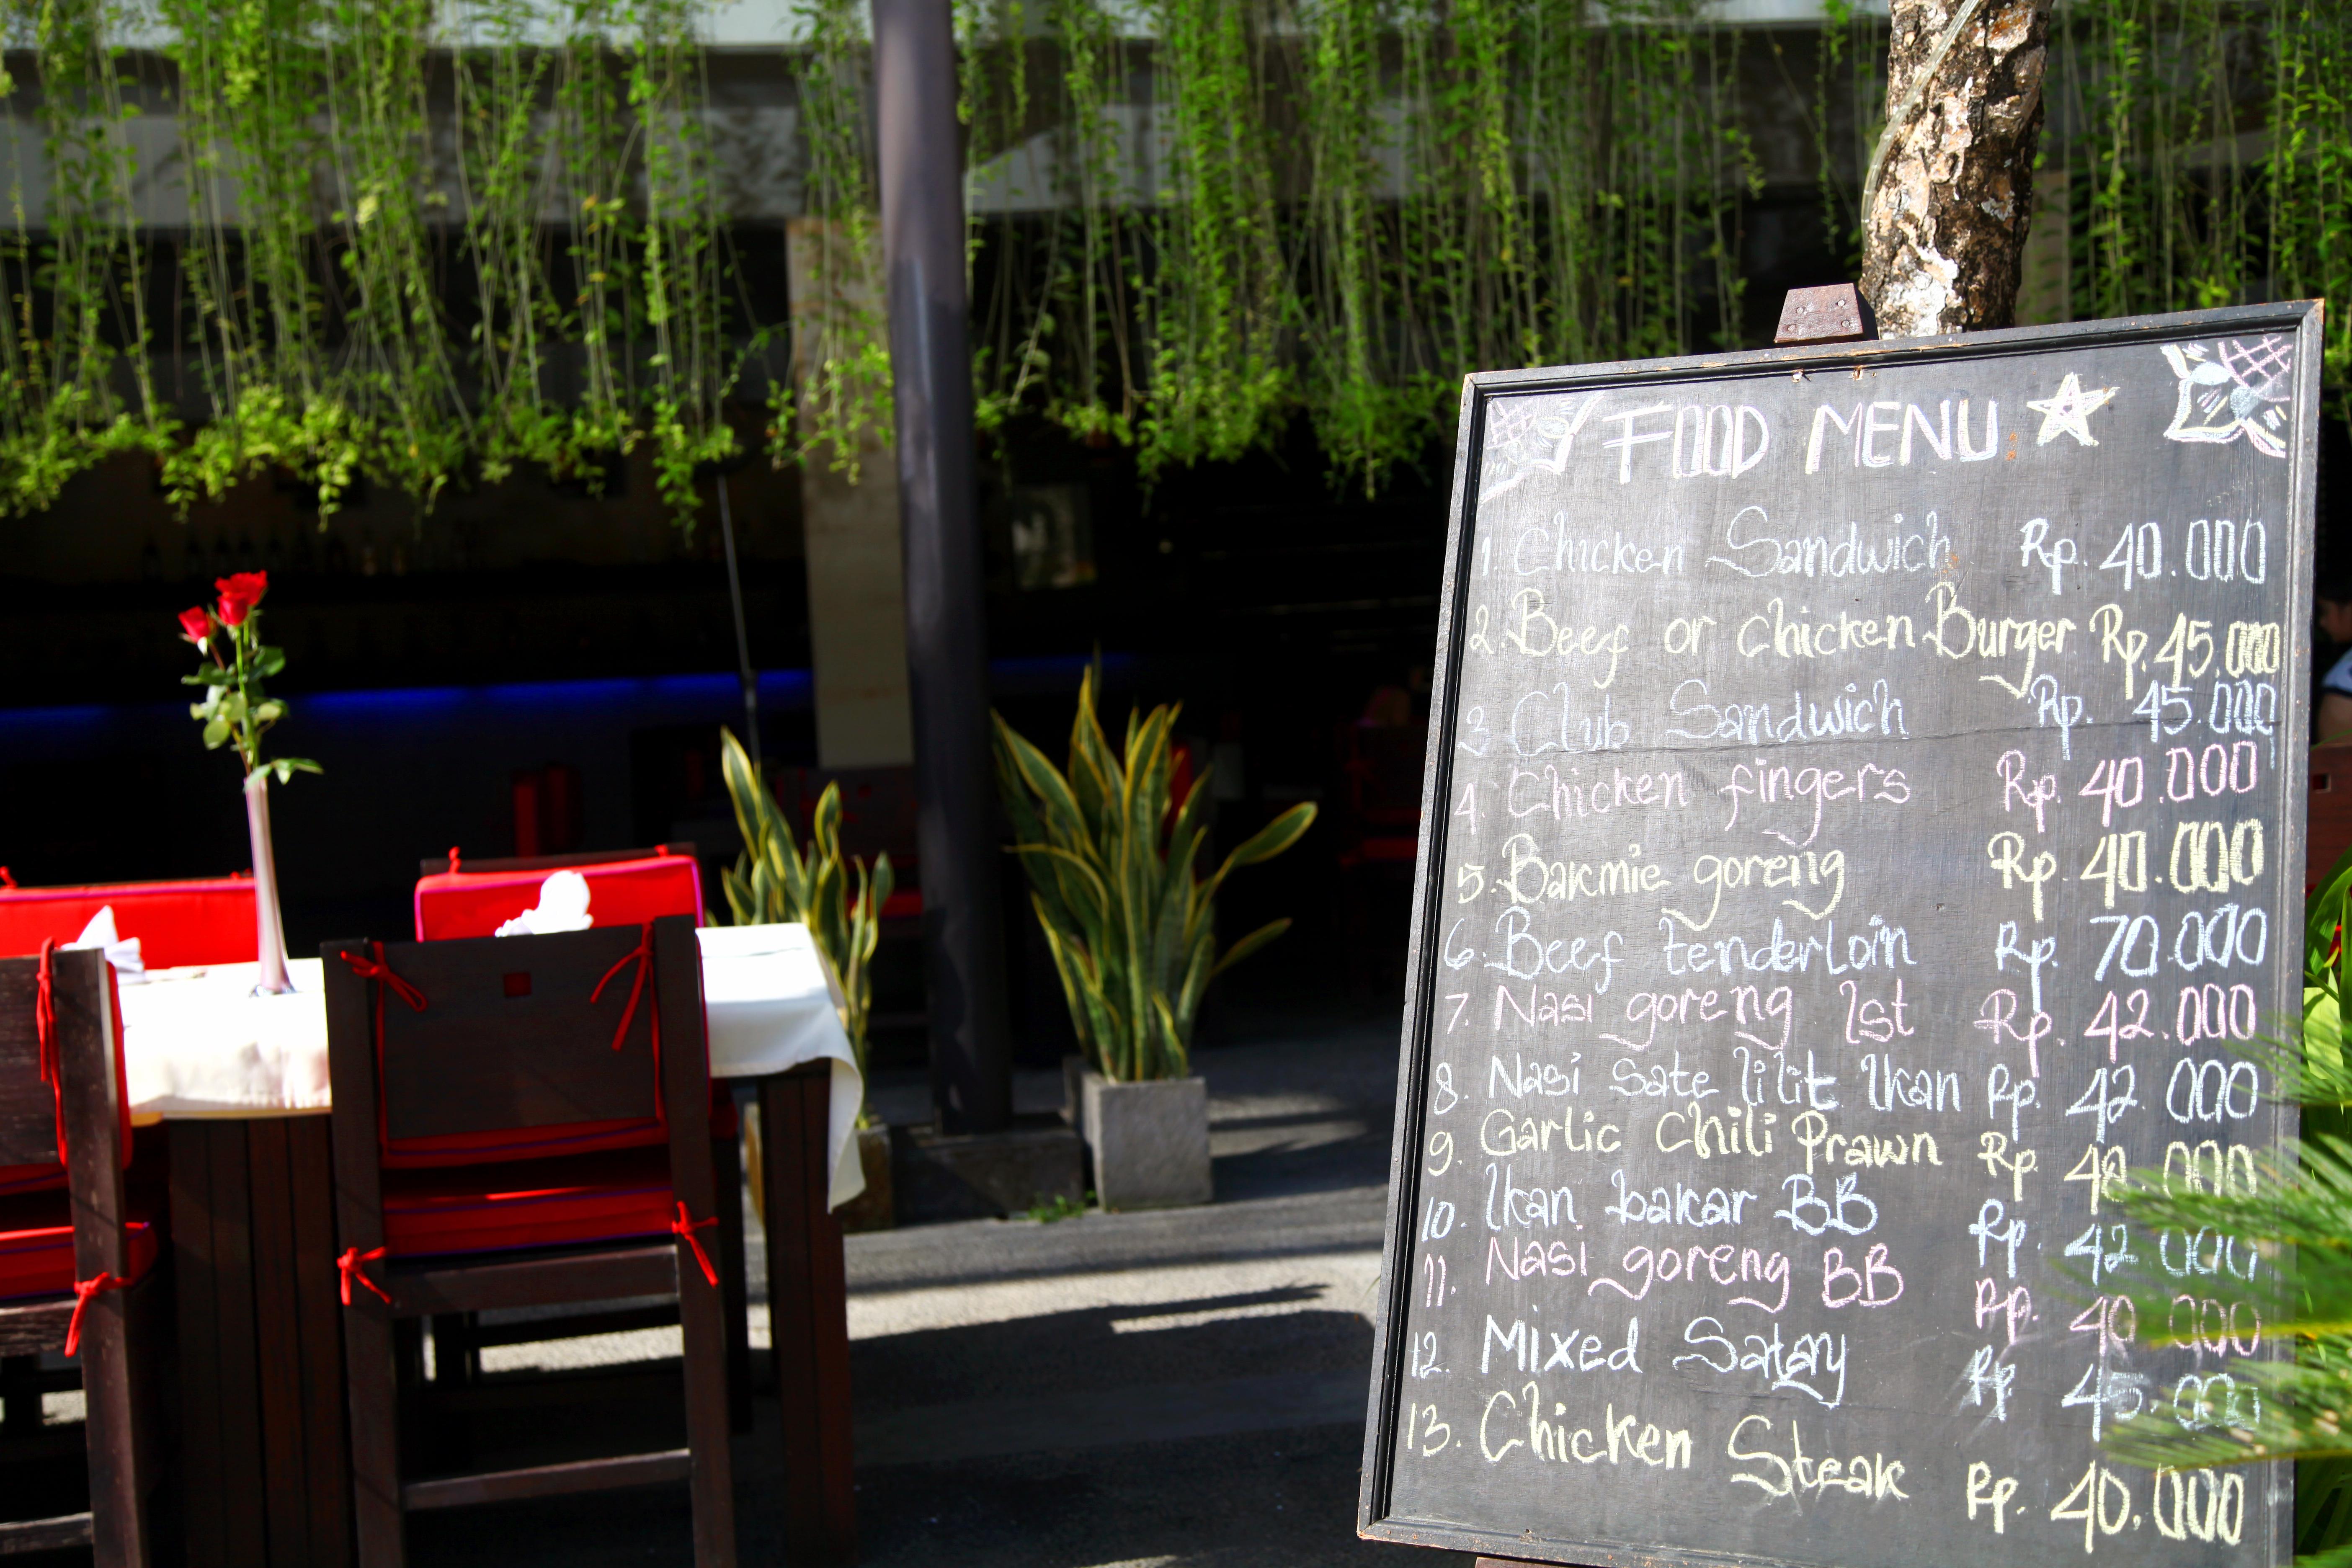 FOOD MENU
1. Chicken Sandwich Rp. 40.000
2. Beef or chicken Burger Rp. 45.000
3 Club Sandwich Rp. 45.000
4. Chicken fingers Rp. 40.000
5. Bakmie goreng Rp. 40.000
6. Beef tenderloin Rp. 70.000
7. Nasi goreng Ist Rp. 42.000
8. Nasi Sate lilit Ikan Rp. 42.000
9. Garlic Chili Prawn Rp. 48.000
10. Ikan bakar BB Rp. 42.000
11. Nasi goreng BB Rp. 40.000
12. Mixed Satay Rp 45.000
13. Chicken Steak Rp. 40.000